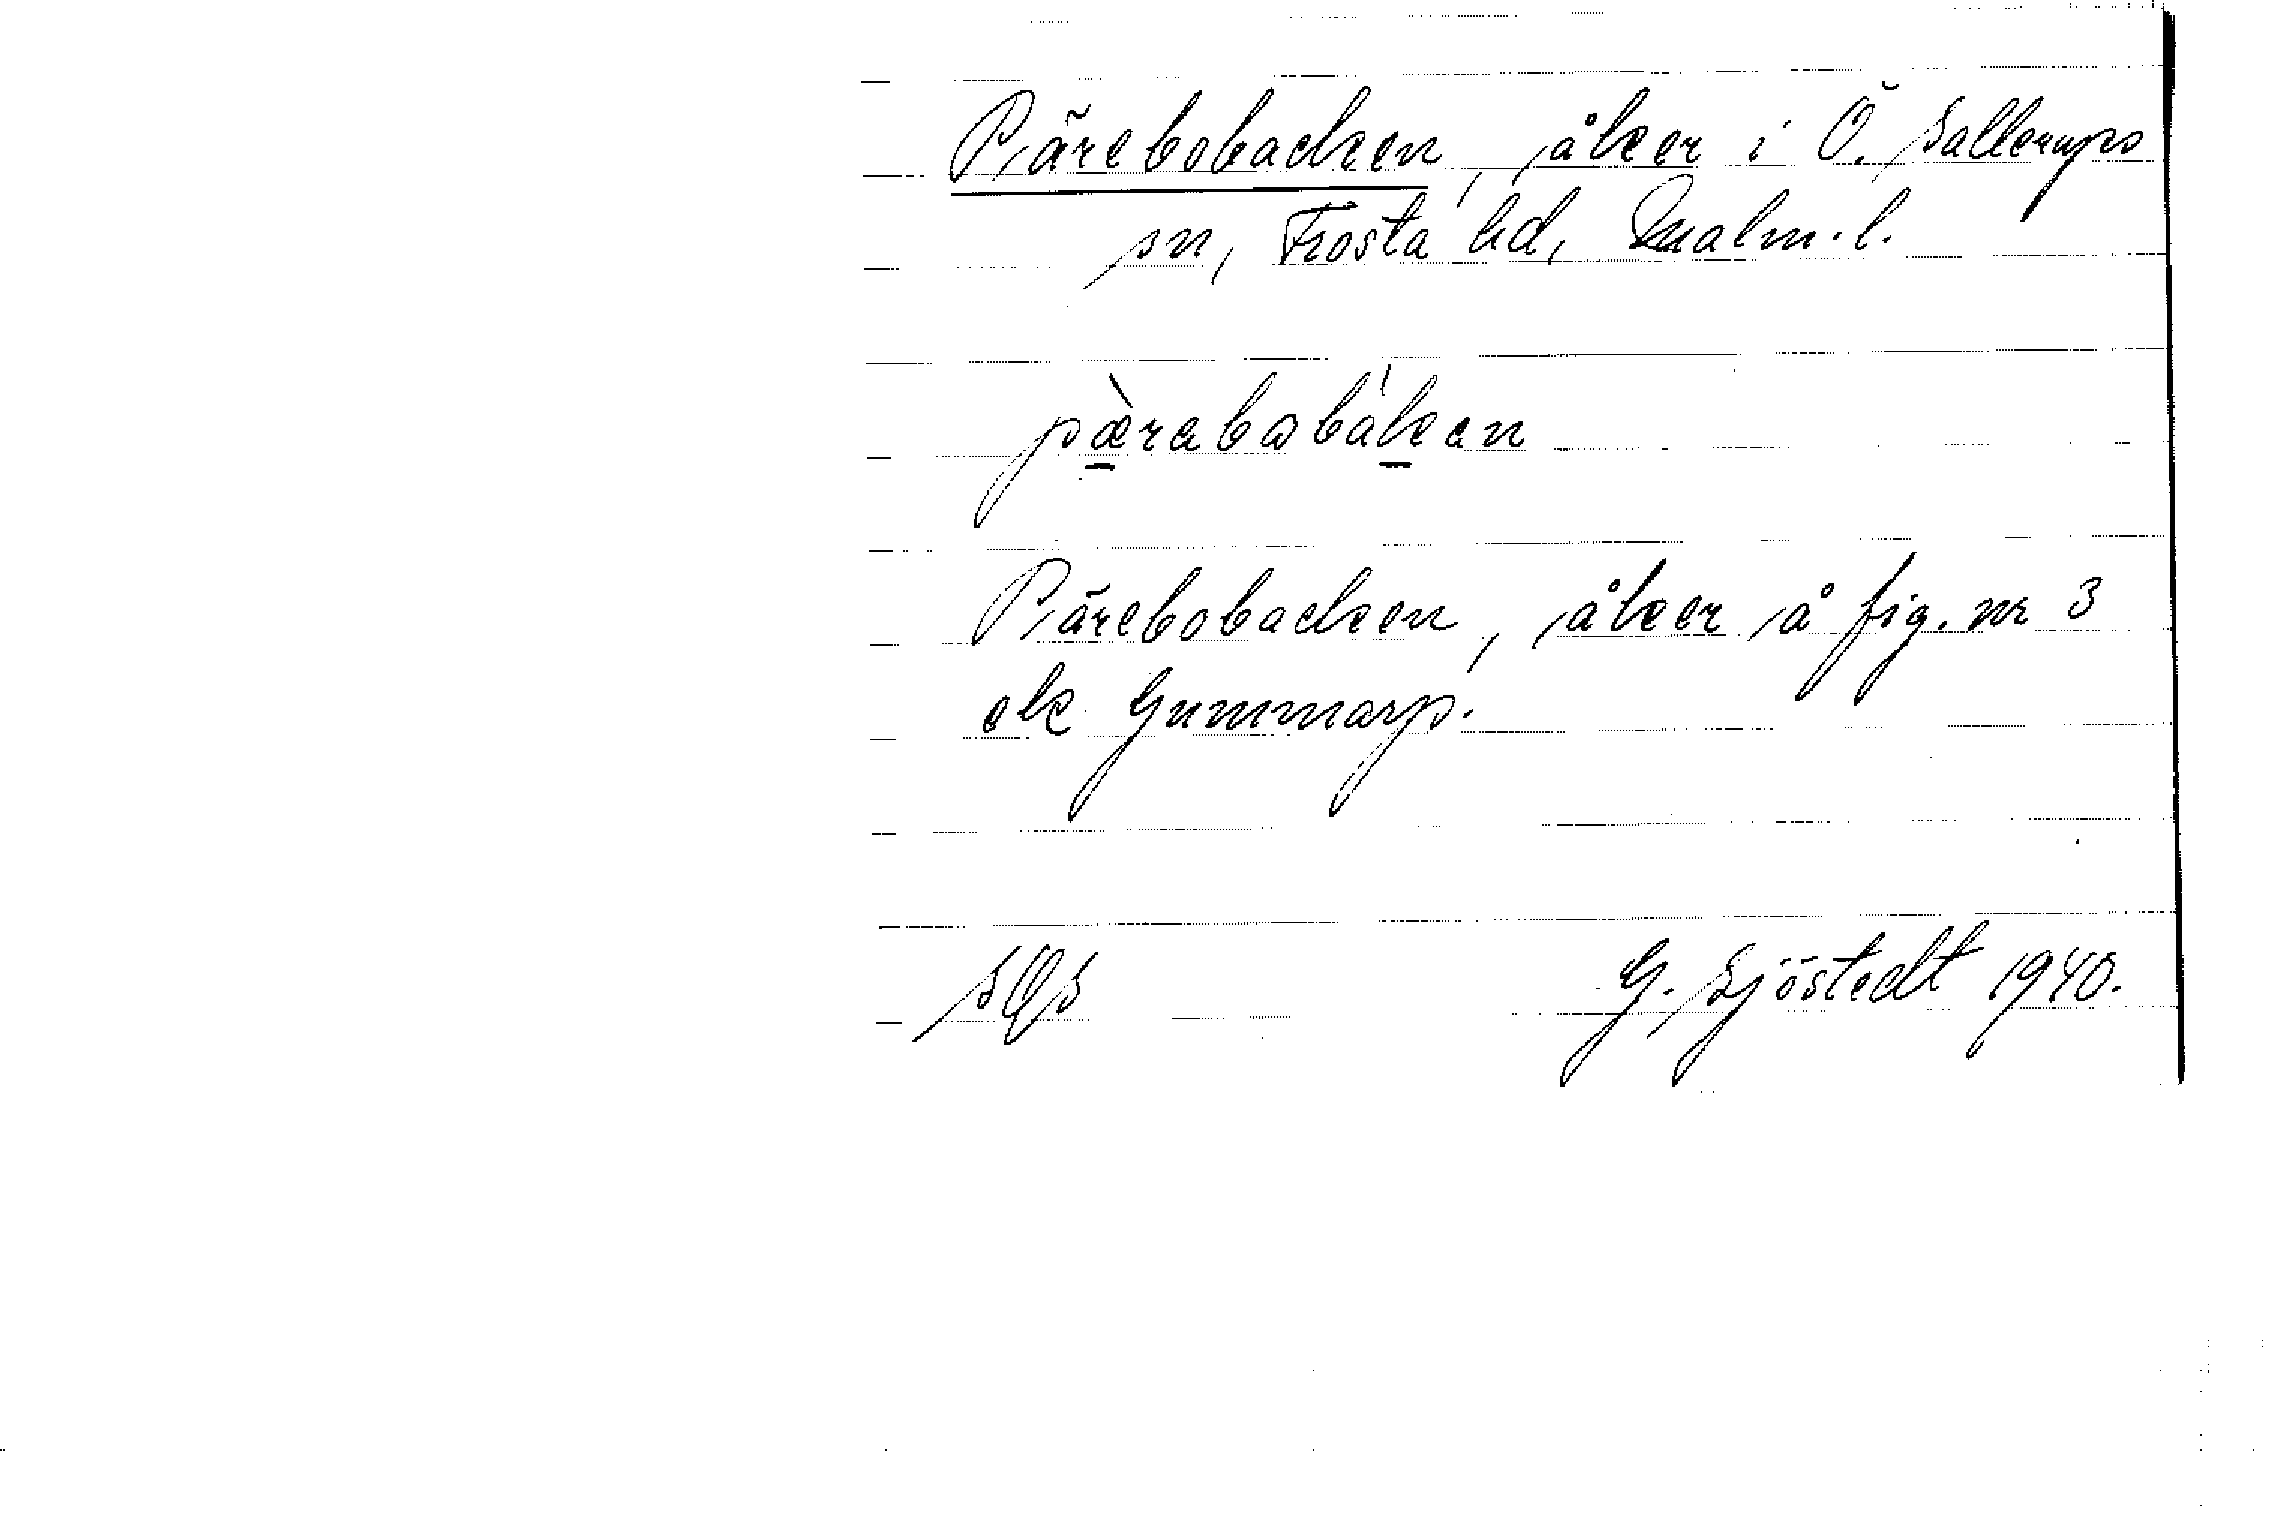 Pärebobacken, åker i Ö. Sallerups
sn, Frosta hd, Malm. l.
pærabobakan
Pärebobacken, åker å fig. nr 3
ock Gummarp.
G. Sjöstedt 1940.